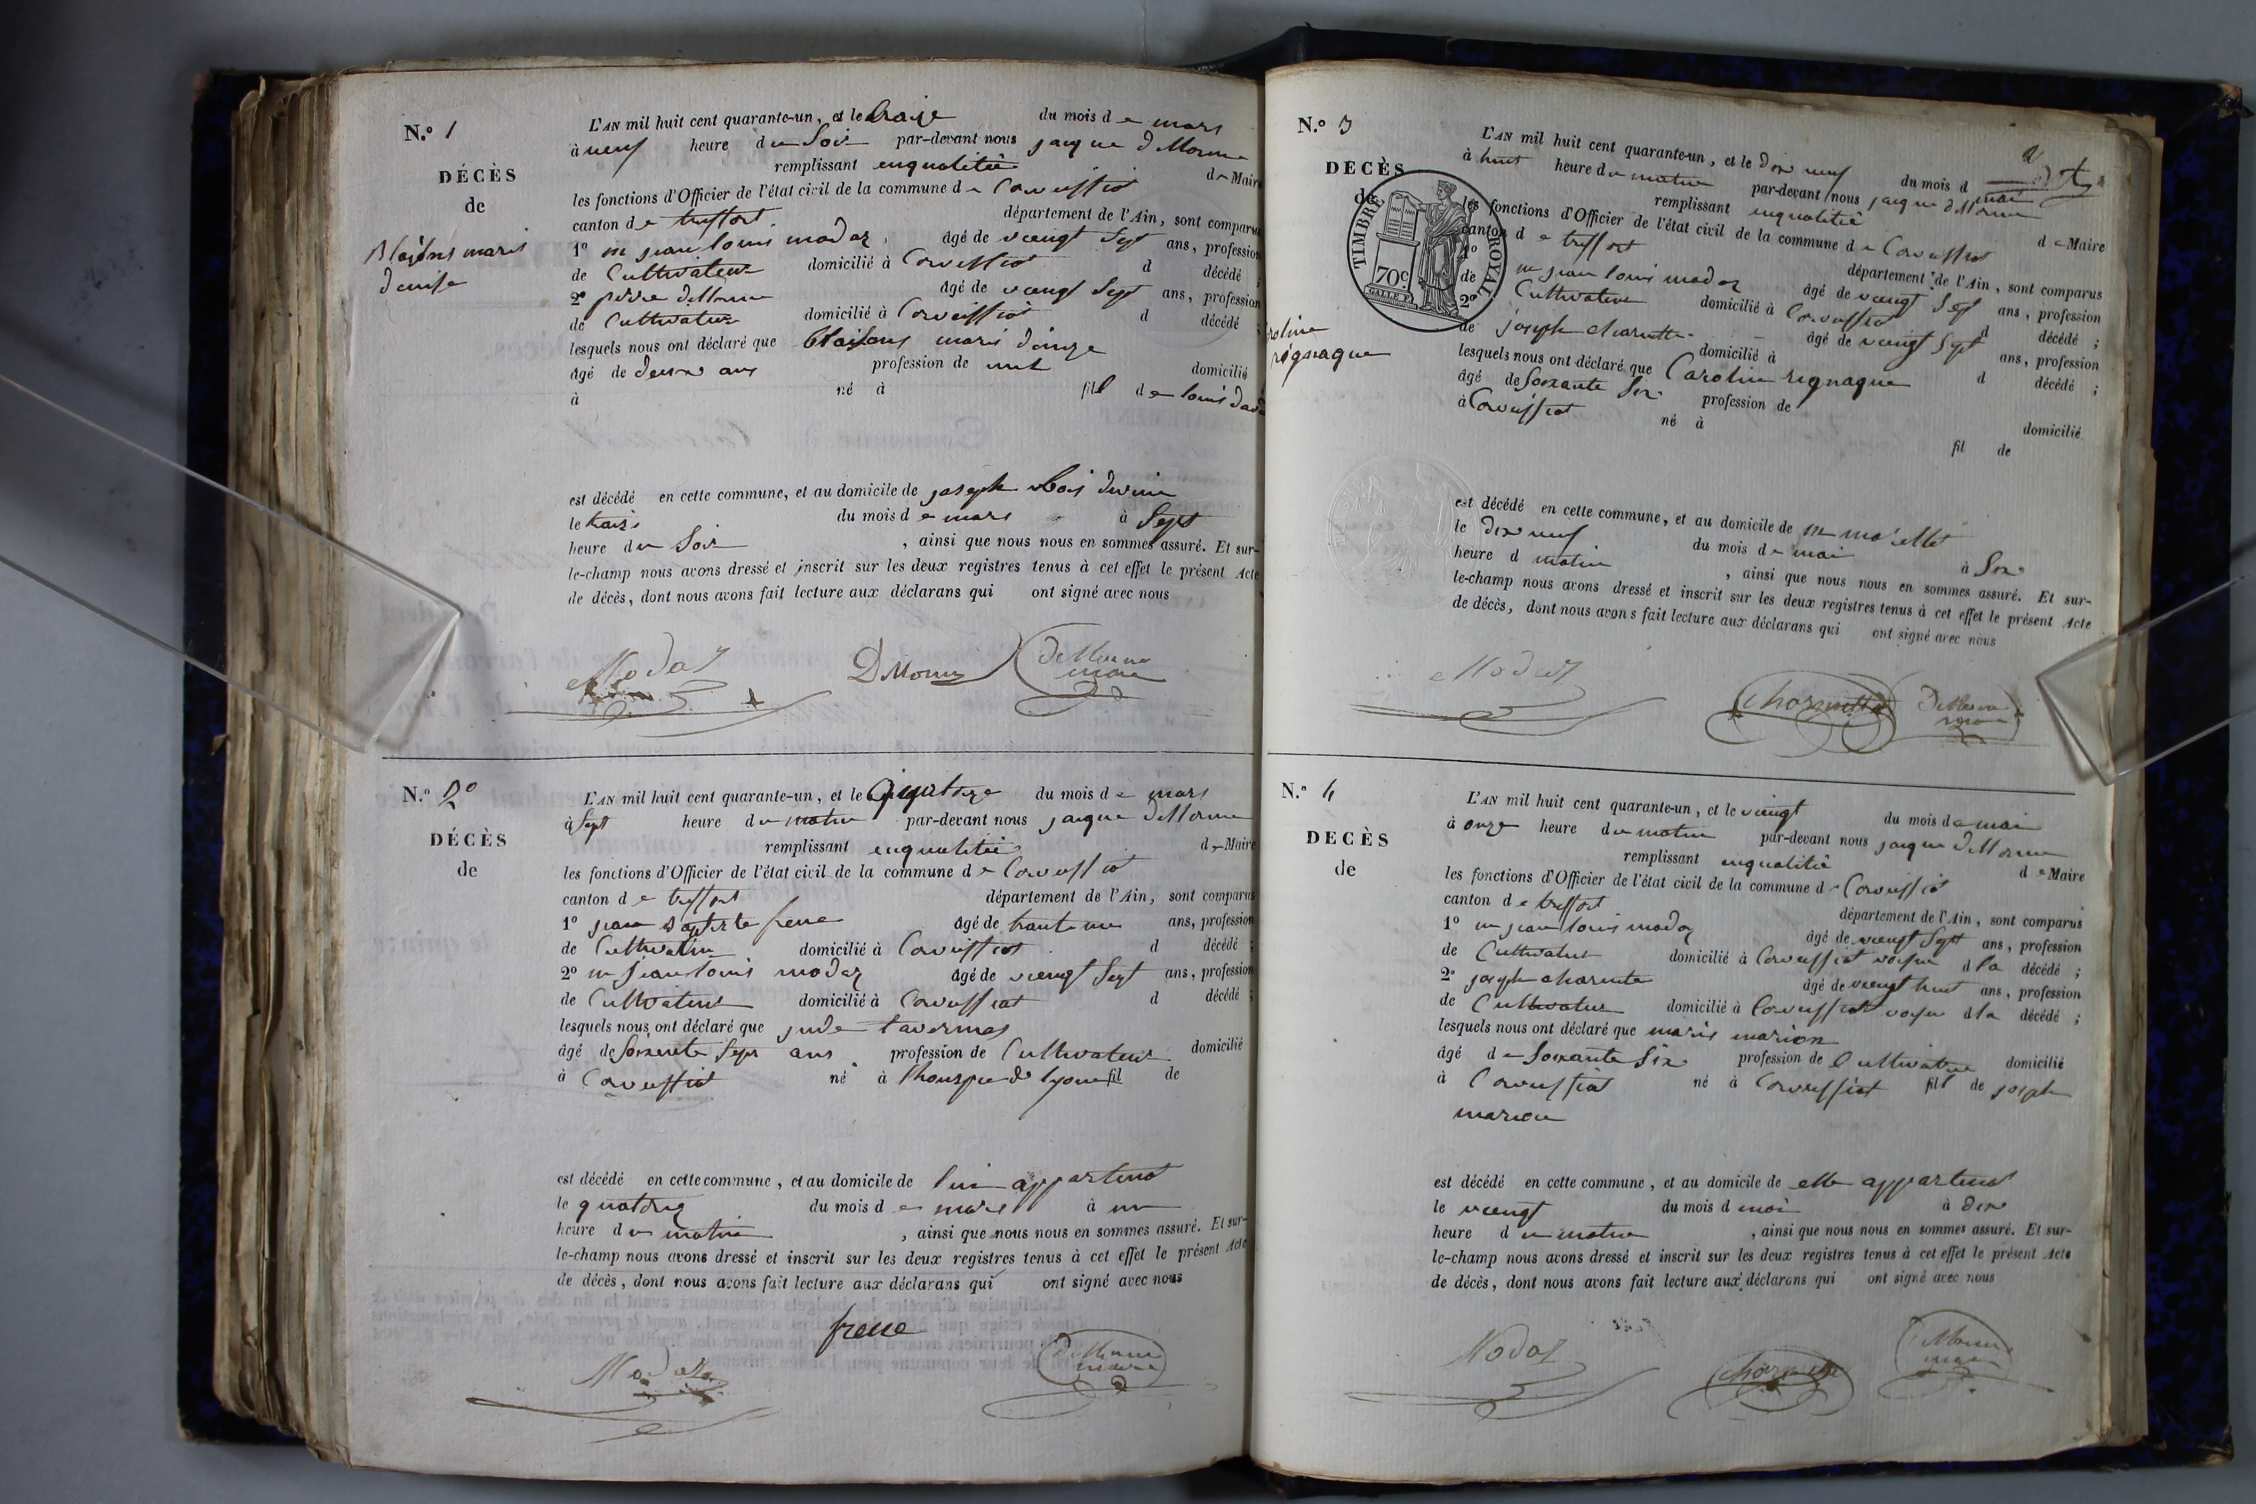 N.o 1
DÉCÈS
de
Marie
denise
L'AN mil huit cent quarante-un, et le traize du mois de mars
à neuf heure du Soir par-devant nous jacque deMorne
remplissant enqualitée de Maire
les fonctions d'Officier de l'état civil de la commune de Corveissiat
canton de treffort département de l'Ain, sont comparus
1o m jean louis modaz, âgé de veingt Sept ans, profession
de Cultivateur domicilié à Corveissiat d décédé ;
2o pierre deMorne âgé de veingt Sept ans, profession
de Cultivateur domicilié à Corveissiat d décédé ;
lesquels nous ont déclaré que marie
âgé de deux ans profession de domicilié
à né à fil de louis
est décédé en cette commune, et au domicile de joseph
le traize du mois de mars à Sept
heure du Soir, ainsi que nous nous en sommes assuré. Et sur-
le-champ nous avons dressé et inscrit sur les deux registres tenus à cet effet le présent Acte
de décès, dont nous avons fait lecture aux déclarans qui ont signé avec nous
Modaz DMorne DeMorne
maire
N.o 2o
DÉCÈS
de
L'AN mil huit cent quarante-un, et le quatorze du mois de mars
à Sept heure du matin par-devant nous jacque deMorne
remplissant enqualitée de Maire
les fonctions d'Officier de l'état civil de la commune de Corveissiat
canton de treffort département de l'Ain, sont comparus
1o jean batiste frene âgé de trante un ans, profession
de Cultivateur domicilié à Corveissiat d décédé ;
2o m jean louis modaz âgé de veingt Sept ans, profession
de Cultivateur domicilié à Corveissiat d décédé ;
lesquels nous ont déclaré que jude tavernas
âgé de Soixente Sept ans profession de Cultivateur domicilié
à Corveissiat né à de lyon fil de
est décédé en cette commune, et au domicile de lui appartenet
le quatorze du mois de mars à un
heure du matin, ainsi que nous nous en sommes assuré. Et sur-
le-champ nous avons dressé et inscrit sur les deux registres tenus à cet effet le présent Acte
de décès, dont nous avons fait lecture aux déclarans qui ont signé avec nous
frene
Modaz DeMorne
maire
N.o 3
DECÈS
de
TIMBRE ROYAL
70c
Caroline
régnaque
L'AN mil huit cent quarante-un, et le dix neuf du mois d mai
à huit heure du matin par-devant nous jacque deMorne
remplissant enqualitée de Maire
les fonctions d'Officier de l'état civil de la commune de Corveissiat
canton de treffort département de l'Ain, sont comparus
1o m jean louis modaz âgé de veingt Sept ans, profession
de Cultivateur domicilié à Corveissiat d décédé ;
2o joseph charnette âgé de veingt Sept ans, profession
de domicilié à d décédé ;
lesquels nous ont déclaré que Caroline régnaque
âgé de Soixante Six profession de domicilié
à Corveissiat né à fil de
est décédé en cette commune, et au domicile de
le dix neuf du mois de mai à Six
heure d matin, ainsi que nous nous en sommes assuré. Et sur-
le-champ nous avons dressé et inscrit sur les deux registres tenus à cet effet le présent Acte
de décès, dont nous avons fait lecture aux déclarans qui ont signé avec nous
Modaz Charnette DeMorne
maire
N.o 4
DECÈS
de
L'AN mil huit cent quarante-un, et le veingt du mois de mai
à onze heure du matin par-devant nous jacque deMorne
remplissant enqualitée de Maire
les fonctions d'Officier de l'état civil de la commune de Corveissiat
canton de treffort département de l'Ain, sont comparus
1o m jean louis modaz âgé de veingt Sept ans, profession
de Cultivateur domicilié à Corveissiat voisin d la décédé ;
2o joseph charnette âgé de veingt huit ans, profession
de Cultivateur domicilié à Corveissiat voisin d la décédé ;
lesquels nous ont déclaré que marie marion
âgé de Soixante Six profession de Cultivateur domicilié
à Corveissiat né à Corveissiat fill de joseph
marion
est décédé en cette commune, et au domicile de elle appartenet
le veingt du mois d mai à dix
heure du matin, ainsi que nous nous en sommes assuré. Et sur-
le-champ nous avons dressé et inscrit sur les deux registres tenus à cet effet le présent Acte
de décès, dont nous avons fait lecture aux déclarans qui ont signé avec nous
Modaz Charnette DeMorne
maire